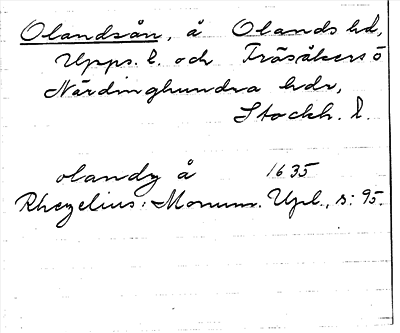 Olandsån, å Olands hd,
Upps. l. och Frösåkers o
Närdinghundra hdr,
Stockh. l.
olandz å 1635
Rhezelius: Monum. Upl., s: 95.